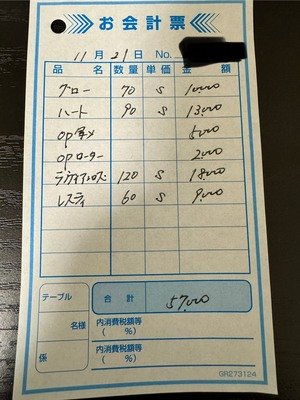 お会計票
11月21日 No.
品名 数量 単価 金額
グロー 70 S 10,000
ハート 90 S 13,000
op 5,000
opローター 2,000
120 S 18,000
レスティ 60 S 9,000
テーブル 合計 57,000
名様 内消費税額等
( %)
係 内消費税額等
( %)
GR273124